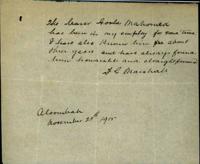 The bearer Goola Mahomed
has been in my employ for some time
I have also known him for about
three years and have always found
him honourable and straightforward
D C Marshall
November 25th 1915